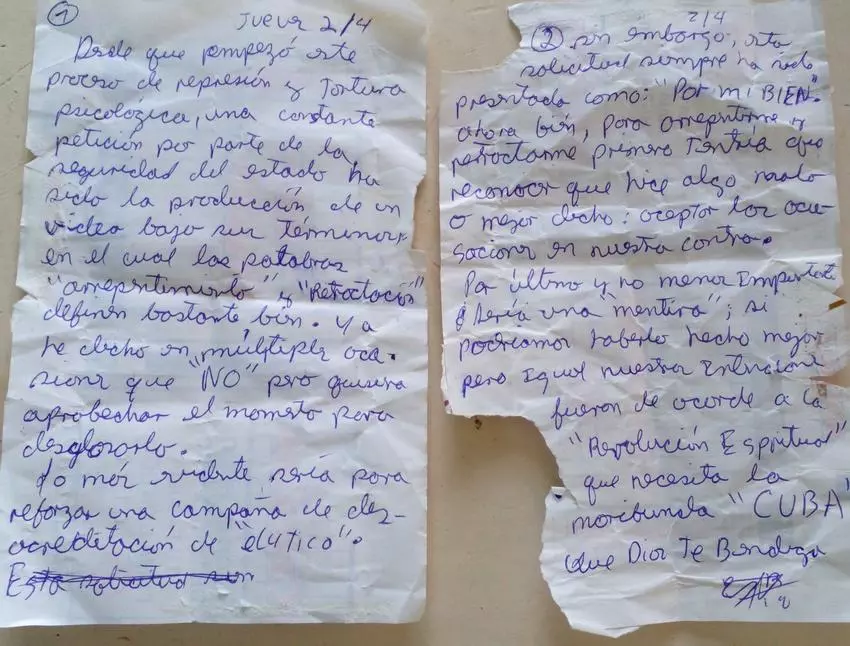 ①
Jueves 2/4
Desde que empezó este
proceso de represión y tortura
psicológica, una constante
petición por parte de la
seguridad del estado ha
sido la producción de un
video bajo sus términos,
en el cual las palabras
"arrepentimiento" y "Retractación"
definen bastante bien. Ya
he dicho en múltiples oca-
siones que "NO" pero quisiera
aprobechar el momento para
desglosarlo.
Lo más evidente, sería para
reforzar una campaña de des-
acreditación de "el4tico".
Esta solicitud
2/4
② sin embargo, esta
solicitud siempre ha sido
presentada como: "Por mi BIEN".
ahora bién, para arrepentirme y
retractarme primero Tendría que
reconocer que hice algo malo
o mejor dicho: aceptar las acu-
saciones en nuestra contra.
Por último y no menos Importante
Sería una "mentira"; si
podríamos haberlo hecho mejor
pero Igual nuestras Intenciones
fueron de acorde a la
"Revolución Espiritual"
que necesita la
moribunda "CUBA"
Que Dios Te Bendiga